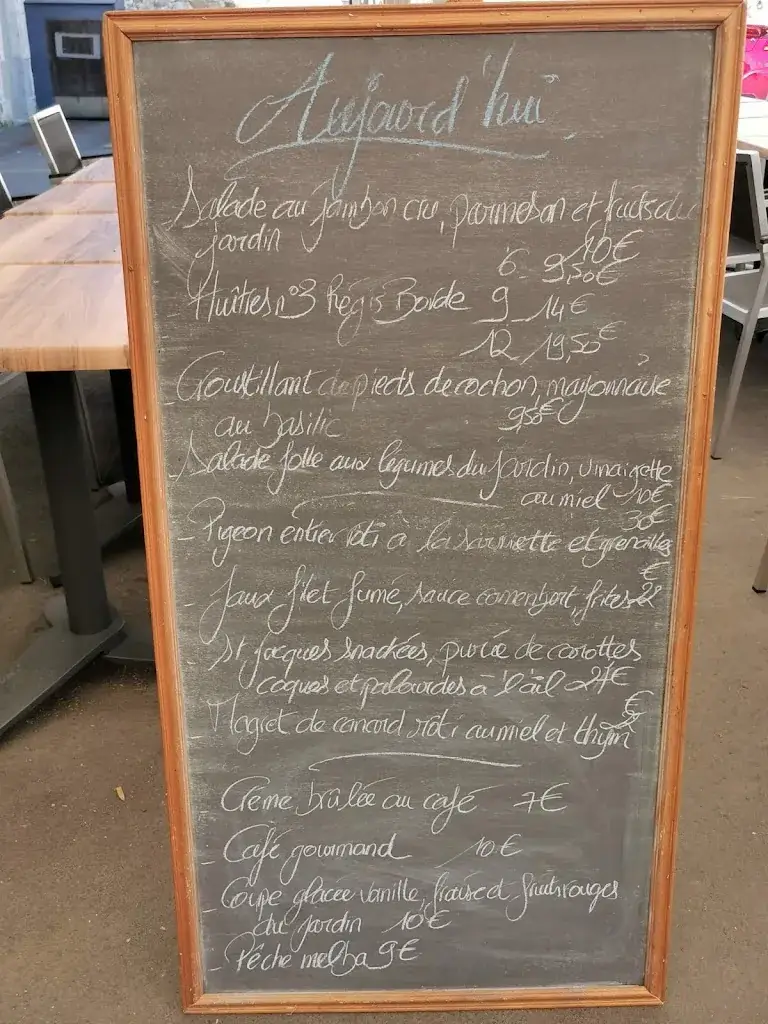 Aujourd'hui
Salade au jambon cru, parmesan et fruits du
jardin 10€
6_ 9,50€
Huîtres n°3 Régis Borde 9_14€
12_19,50€
Croustillant de pieds de cochon, mayonnaise
au basilic 9,50€
Salade folle aux légumes du jardin, vinaigrette
au miel 10€
30€
- Pigeon entier rôti à la sarriette et grenailles
€
- Faux filet fumé, sauce camembert, frites 22
- St jacques snackées, purée de carottes
coques et palourdes à l'ail 27€
€
- Magret de canard rôti au miel et thym
Crème brûlée au café 7€
- Café gourmand 10€
- Coupe glacée vanille, fraise et fruits rouges
du jardin 10€
- Pêche melba 9€